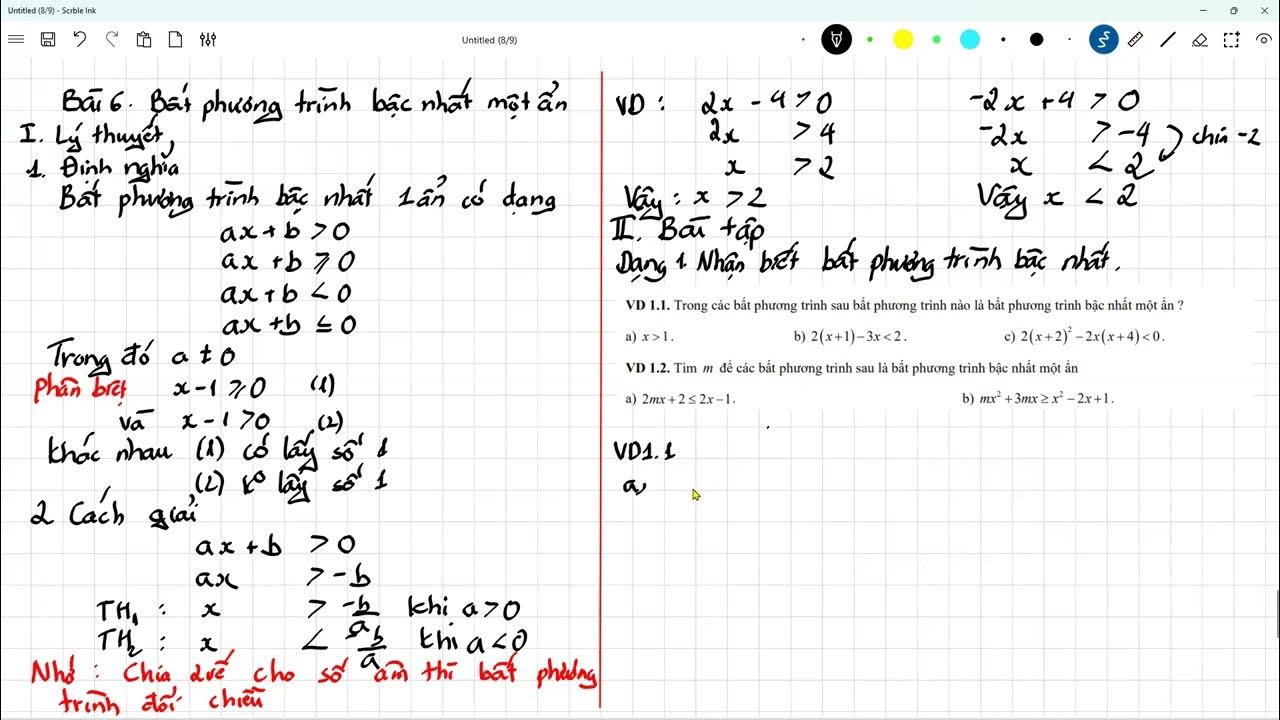 Untitled (8/9) - Scrble Ink
Untitled (8/9)
Bài 6. Bất phương trình bậc nhất một ẩn
I. Lý thuyết
1. Định nghĩa
Bất phương trình bậc nhất 1 ẩn có dạng
ax + b > 0
ax + b ⩾ 0
ax + b < 0
ax + b ≤ 0
Trong đó a ≠ 0
Phân biệt x - 1 ⩾ 0 (1)
và x - 1 > 0 (2)
khác nhau (1) có lấy số 1
(2) k° lấy số 1
2 Cách giải
ax + b > 0
ax > -b
TH₁ : x > -b/a khi a > 0
TH₂ : x < -b/a khi a < 0
Nhớ : Chia 2 vế cho số âm thì bất phương
trình đổi chiều
VD : 2x - 4 > 0 -2x + 4 > 0
2x > 4 -2x > -4 chia -2
x > 2 x < 2
Vậy : x > 2 Vậy x < 2
II. Bài tập
Dạng 1 Nhận biết bất phương trình bậc nhất.
VD 1.1. Trong các bất phương trình sau bất phương trình nào là bất phương trình bậc nhất một ẩn ?
a) x > 1. b) 2(x+1) − 3x < 2. c) 2(x+2)² − 2x(x+4) < 0.
VD 1.2. Tìm m để các bất phương trình sau là bất phương trình bậc nhất một ẩn
a) 2mx + 2 ≤ 2x − 1. b) mx² + 3mx ≥ x² − 2x + 1.
VD1.1
a,